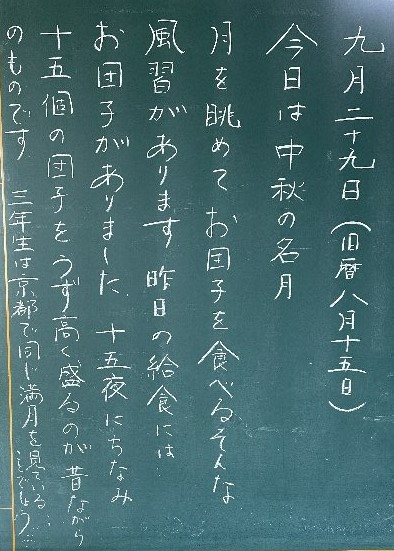 九月二十九日(旧暦八月十五日)
今日は中秋の名月
月を眺めてお団子を食べるそんな
風習があります 昨日の給食には
お団子がありました 十五夜にちなみ
十五個の団子をうず高く盛るのが昔ながら
のものです 三年生は京都で同じ満月を見ている
ことでしょう…